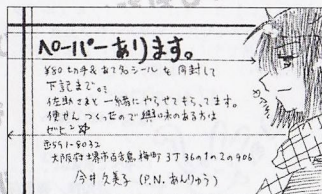 ペーパーあります。
¥80切手&あて名シールを同封して
下記まで。
佐助さまと一緒にやらせてもらってます。
便せんつくったので興味のある方は
ぜひ
〒591-8032
大阪府堺市百舌鳥梅町3丁36の1の2の906
今井久美子(P.N.あんりゅう)